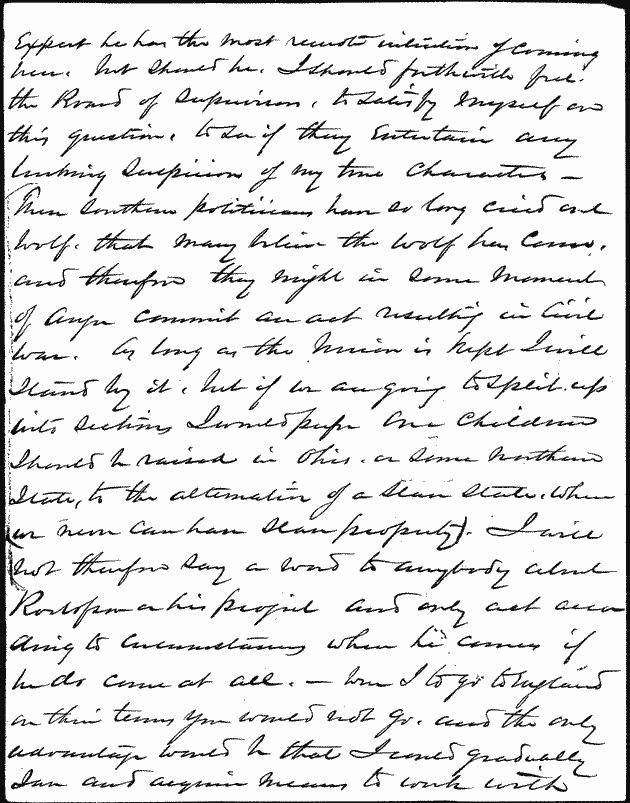 Expect he has the most remote intention of coming
here. but should he. I should forthwith feel
the Board of Supervisors, to satisfy myself on
this question, to see if they Entertain any
lurking Suspicion of my true Character —
These southern politicians have so long cried out
wolf. that many believe the wolf has come.
and therefore they might in some moment
of anger commit an act resulting in Civil
war. As long as the Union is kept I will
stand by it. but if we are going to split up
into sections I would prefer our children
should be raised in Ohio. or some northern
State, to the alternative of a slave state. when
we never can have slave property). I will
not therefore say a word to anybody about
or his project and only act accor
ding to circumstances when he comes if
he do come at all. — were I to go to England
on their terms you would not go. and the only
advantage would be that I could gradually
save and acquire means to work with